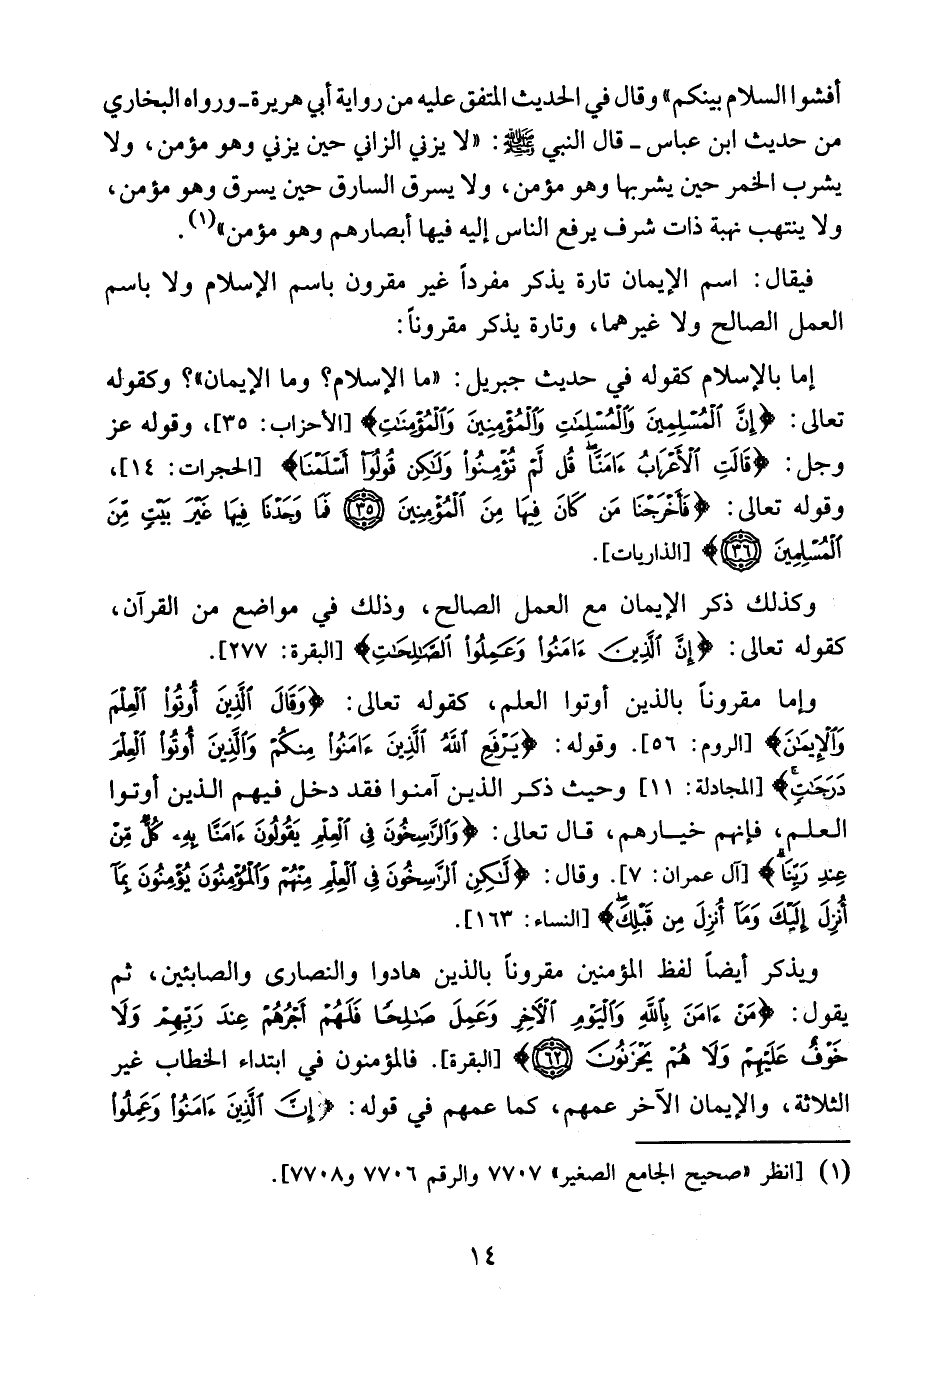 أفشوا السلام بينكم» وقال في الحديث المتفق عليه من رواية أبي هريرة ـ ورواه البخاري
من حديث ابن عباس ـ قال النبي ﷺ: «لا يزني الزاني حين يزني وهو مؤمن، ولا
يشرب الخمر حين يشربها وهو مؤمن، ولا يسرق السارق حين يسرق وهو مؤمن،
ولا ينتهب نهبة ذات شرف يرفع الناس إليه فيها أبصارهم وهو مؤمن»(١).
فيقال: اسم الإيمان تارة يذكر مفرداً غير مقرون باسم الإسلام ولا باسم
العمل الصالح ولا غيرهما، وتارة يذكر مقروناً:
إما بالإسلام كقوله في حديث جبريل: «ما الإسلام؟ وما الإيمان»؟ وكقوله
تعالى: ﴿إِنَّ ٱلْمُسْلِمِينَ وَٱلْمُسْلِمَٰتِ وَٱلْمُؤْمِنِينَ وَٱلْمُؤْمِنَٰتِ﴾ [الأحزاب: ٣٥]، وقوله عز
وجل: ﴿قَالَتِ ٱلْأَعْرَابُ ءَامَنَّا ۖ قُل لَّمْ تُؤْمِنُوا۟ وَلَٰكِن قُولُوٓا۟ أَسْلَمْنَا﴾ [الحجرات: ١٤]،
وقوله تعالى: ﴿فَأَخْرَجْنَا مَن كَانَ فِيهَا مِنَ ٱلْمُؤْمِنِينَ ٣٥ فَمَا وَجَدْنَا فِيهَا غَيْرَ بَيْتٍ مِّنَ
ٱلْمُسْلِمِينَ ٣٦﴾ [الذاريات].
وكذلك ذكر الإيمان مع العمل الصالح، وذلك في مواضع من القرآن،
كقوله تعالى: ﴿إِنَّ ٱلَّذِينَ ءَامَنُوا۟ وَعَمِلُوا۟ ٱلصَّٰلِحَٰتِ﴾ [البقرة: ٢٧٧].
وإما مقروناً بالذين أوتوا العلم، كقوله تعالى: ﴿وَقَالَ ٱلَّذِينَ أُوتُوا۟ ٱلْعِلْمَ
وَٱلْإِيمَٰنَ﴾ [الروم: ٥٦]. وقوله: ﴿يَرْفَعِ ٱللَّهُ ٱلَّذِينَ ءَامَنُوا۟ مِنكُمْ وَٱلَّذِينَ أُوتُوا۟ ٱلْعِلْمَ
دَرَجَٰتٍ ۚ﴾ [المجادلة: ١١] وحيث ذكر الذين آمنوا فقد دخل فيهم الذين أوتوا
العلم، فإنهم خيارهم، قال تعالى: ﴿وَٱلرَّٰسِخُونَ فِى ٱلْعِلْمِ يَقُولُونَ ءَامَنَّا بِهِۦ كُلٌّ مِّنْ
عِندِ رَبِّنَا ۗ﴾ [آل عمران: ٧]. وقال: ﴿لَّٰكِنِ ٱلرَّٰسِخُونَ فِى ٱلْعِلْمِ مِنْهُمْ وَٱلْمُؤْمِنُونَ يُؤْمِنُونَ بِمَآ
أُنزِلَ إِلَيْكَ وَمَآ أُنزِلَ مِن قَبْلِكَ ۚ﴾ [النساء: ١٦٣].
ويذكر أيضاً لفظ المؤمنين مقروناً بالذين هادوا والنصارى والصابئين، ثم
يقول: ﴿مَنْ ءَامَنَ بِٱللَّهِ وَٱلْيَوْمِ ٱلْءَاخِرِ وَعَمِلَ صَٰلِحًا فَلَهُمْ أَجْرُهُمْ عِندَ رَبِّهِمْ وَلَا
خَوْفٌ عَلَيْهِمْ وَلَا هُمْ يَحْزَنُونَ ٦٢﴾ [البقرة]. فالمؤمنون في ابتداء الخطاب غير
الثلاثة، والإيمان الآخر عمهم، كما عمهم في قوله: ﴿إِنَّ ٱلَّذِينَ ءَامَنُوا۟ وَعَمِلُوا۟
(١) [انظر «صحيح الجامع الصغير» ٧٧٠٧ والرقم ٧٧٠٦ و٧٧٠٨].
١٤